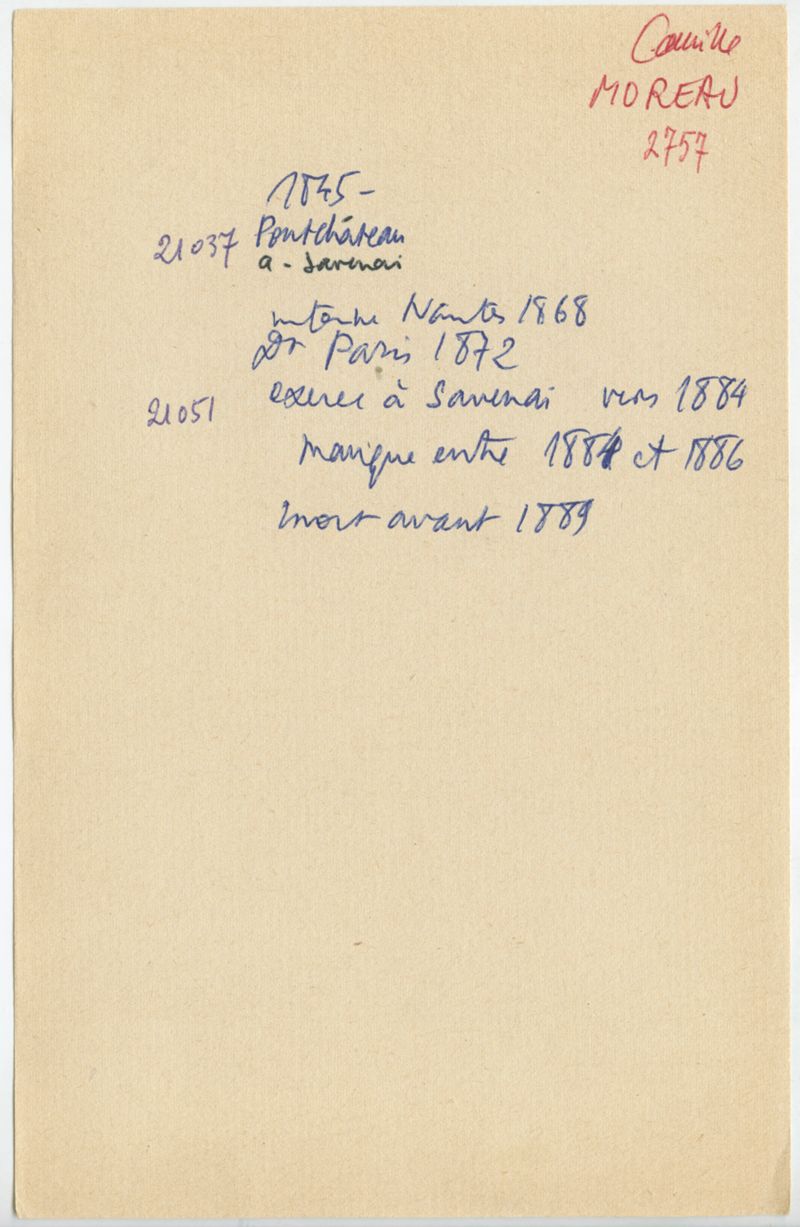 Camille
MOREAU
2757
1845-
21037 Pontchâteau
a - Savenai
interne Nantes 1868
Dr Paris 1872
21051 exerce à Savenai vers 1884
manque entre 1884 et 1886
mort avant 1889